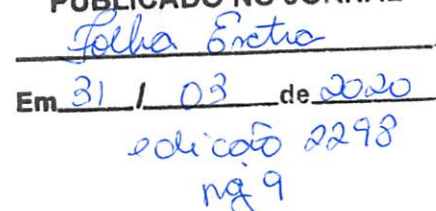 PUBLICADO NO JORNAL
Folha Extra
Em 31 / 03 de 2020
edicação 2298
pág 9